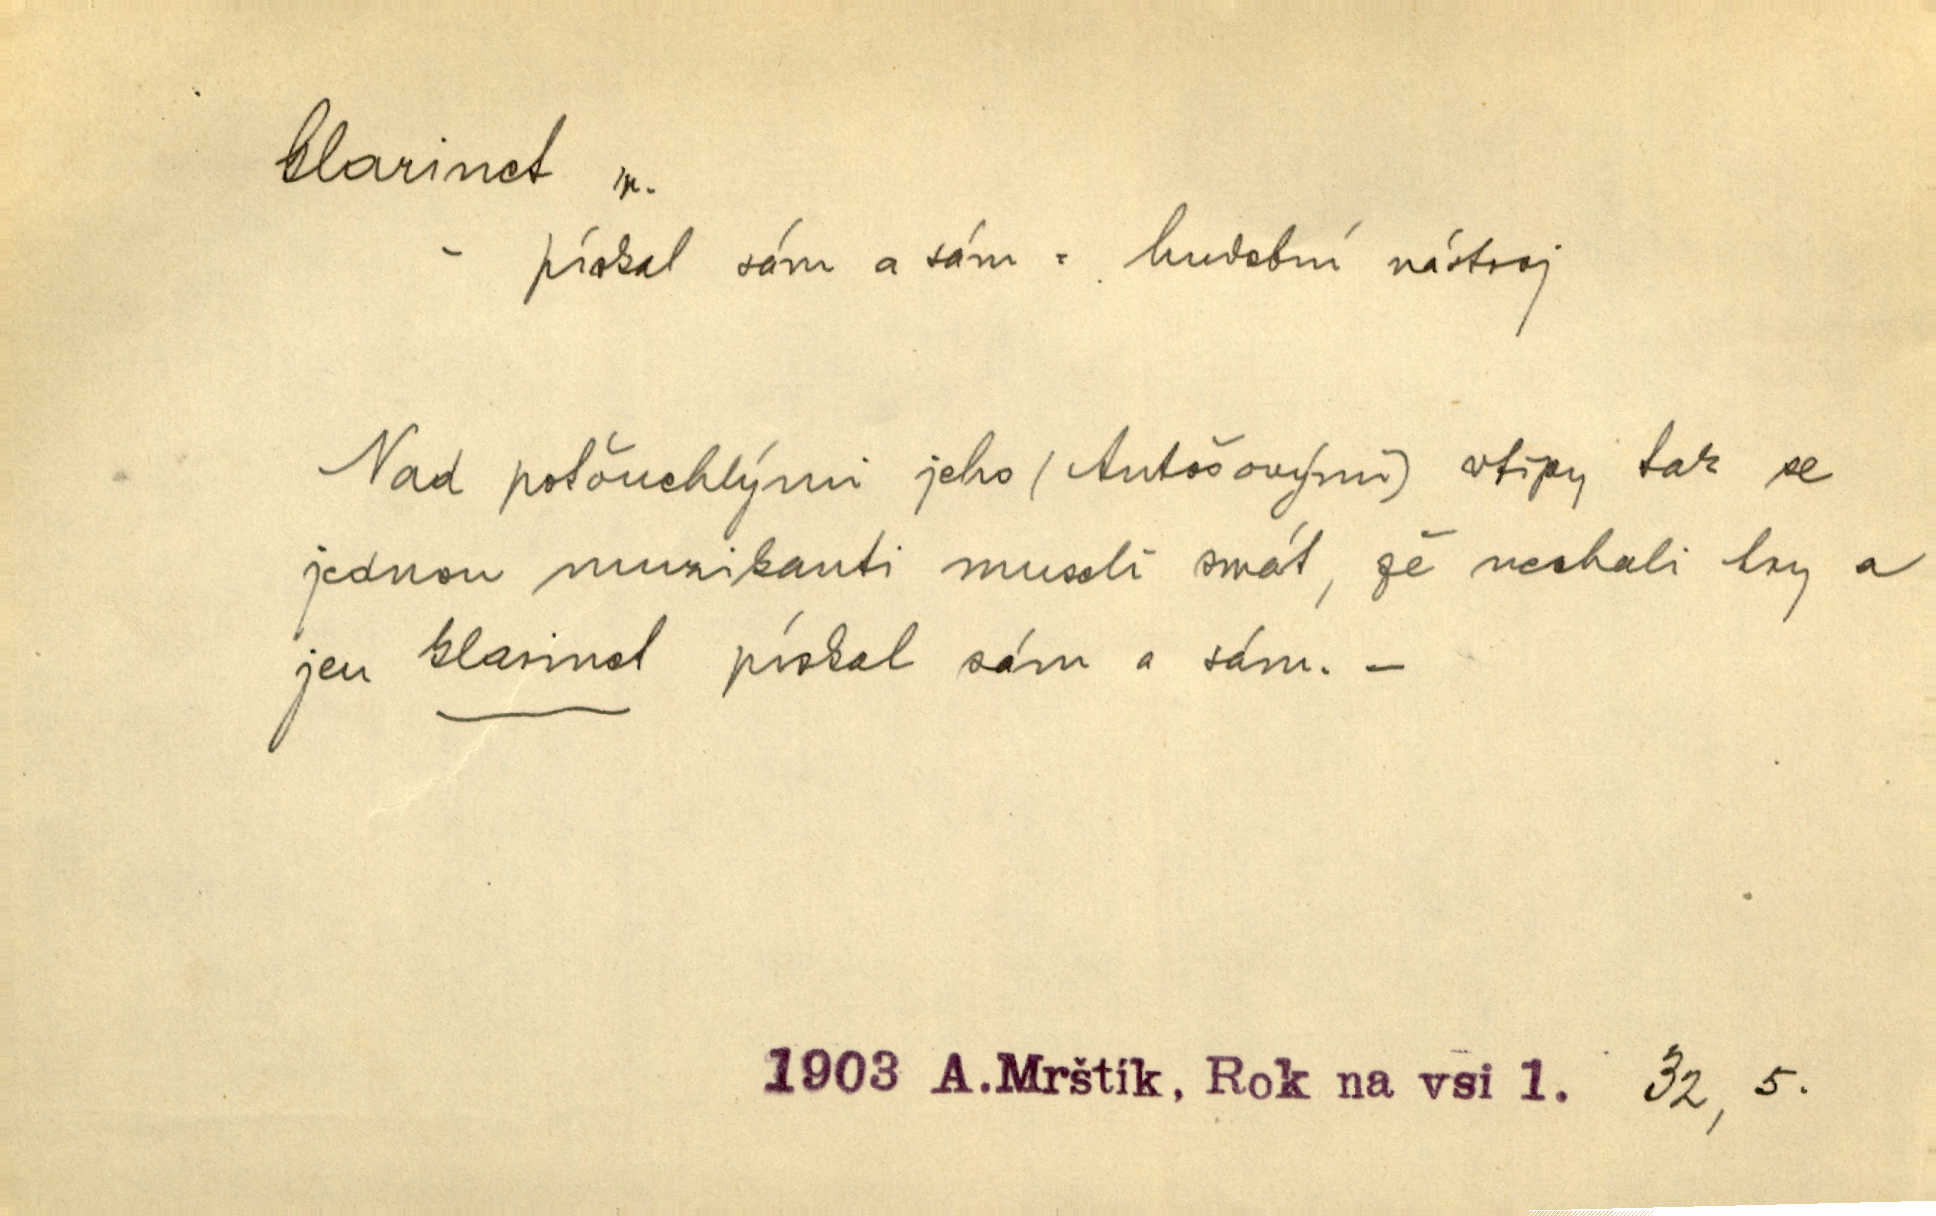 klarinet m.
- pískal sám a sám = hudební nástroj
Nad potouchlými jeho (Antošovými) vtipy tak se
jednou muzikanti museli smát, že nechali hry a
jen klarinet pískal sám a sám. -
1903 A.Mrštík, Rok na vsi 1. 32, 5.